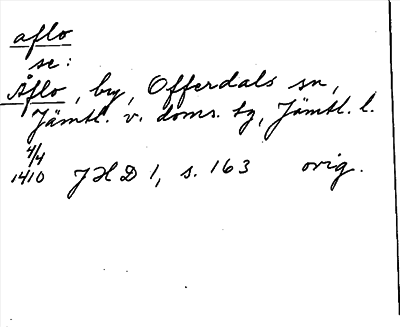 aflo
se:
Åflo, by, Offerdals sn,
Jämtl. v. doms. tg, Jämtl. l.
4/4
1410 JHD 1, s. 163 orig.